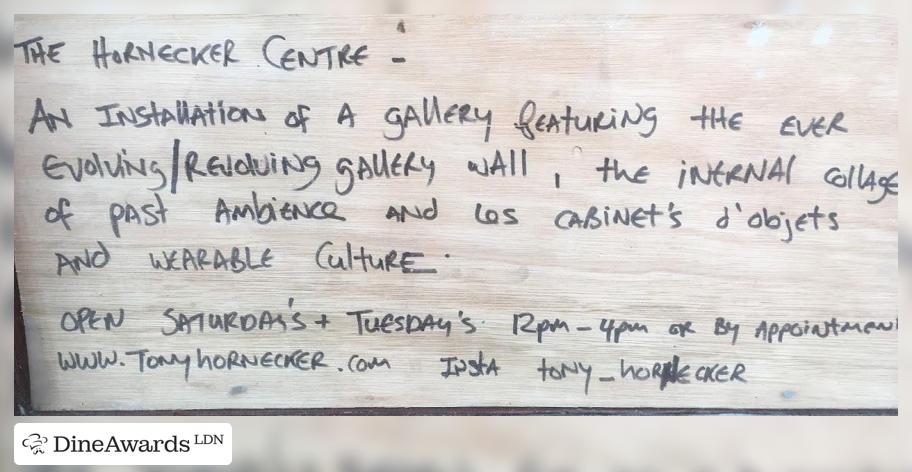 THE HORNECKER CENTRE -
AN INSTAllATION of A gAllERY fEATURING tHE EVER
EVOLVING/REVOLVING gAllERY wAll, the iNTERNAL collAgE
of pAst AMbiENCE AND Les CABINET's d'objets
AND WEARABLE CultuRE.
OPEN SATURDAY'S + TUESDAY'S. 12pm - 4pm OR By AppOiNTMEN
WWW.TONYHORNECKER.COM INSTA tONY_hORNECKER
DineAwards LDN